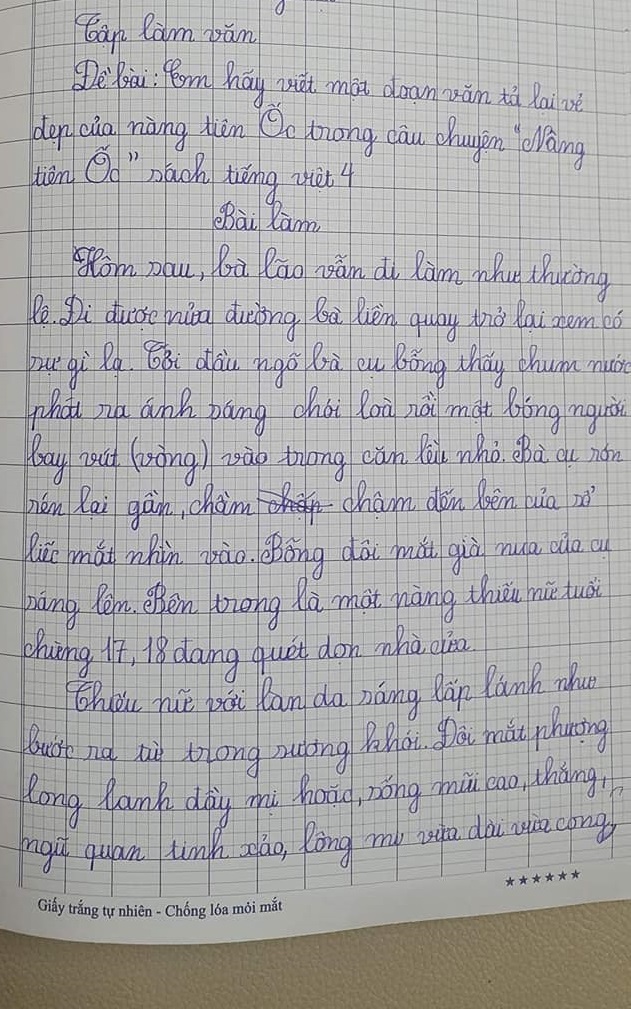 Tập làm văn
Đề bài: Em hãy viết một đoạn văn tả lại vẻ
đẹp của nàng tiên Ốc trong câu chuyện "Nàng
tiên Ốc" sách tiếng việt 4
Bài làm
Hôm sau, bà lão vẫn đi làm như thường
lệ. Đi được nửa đường bà liền quay trở lại xem có
sự gì lạ. Tới đầu ngõ bà cụ bỗng thấy chum nước
phát ra ánh sáng chói loà rồi một bóng người
bay vút (vòng) vào trong căn lều nhỏ. Bà cụ rón
rén lại gần, chầm chập chậm đến bên cửa sổ
liếc mắt nhìn vào. Bỗng đôi mắt già nua của cụ
sáng lên. Bên trong là một nàng thiếu nữ tuổi
chừng 17, 18 đang quét dọn nhà cửa.
Thiếu nữ với lan da sáng lấp lánh như
bước ra từ trong sương khói. Đôi mắt phượng
long lanh đầy mị hoặc, sống mũi cao, thẳng,
ngũ quan tinh xảo, lông mi vừa dài vừa cong,
★★★★★★
Giấy trắng tự nhiên - Chống lóa mỏi mắt